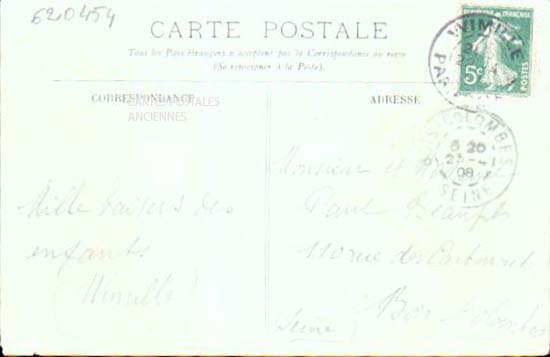 620454
CARTE POSTALE
Tous les Pays étrangers n'acceptent pas la Correspondance au recto
(Se renseigner à la Poste).
CORRESPONDANCE
ADRESSE
CARTES POSTALES
ANCIENNES
REPUBLIQUE FRANÇAISE
5c
POSTES
WIMILLE
PAS
COLOMBES
6 20
23 -1
08
SEINE
Mille baisers des
enfants
(Wimille)
Monsieur et
Paul
rue des
Bois-Colombes
(Seine)